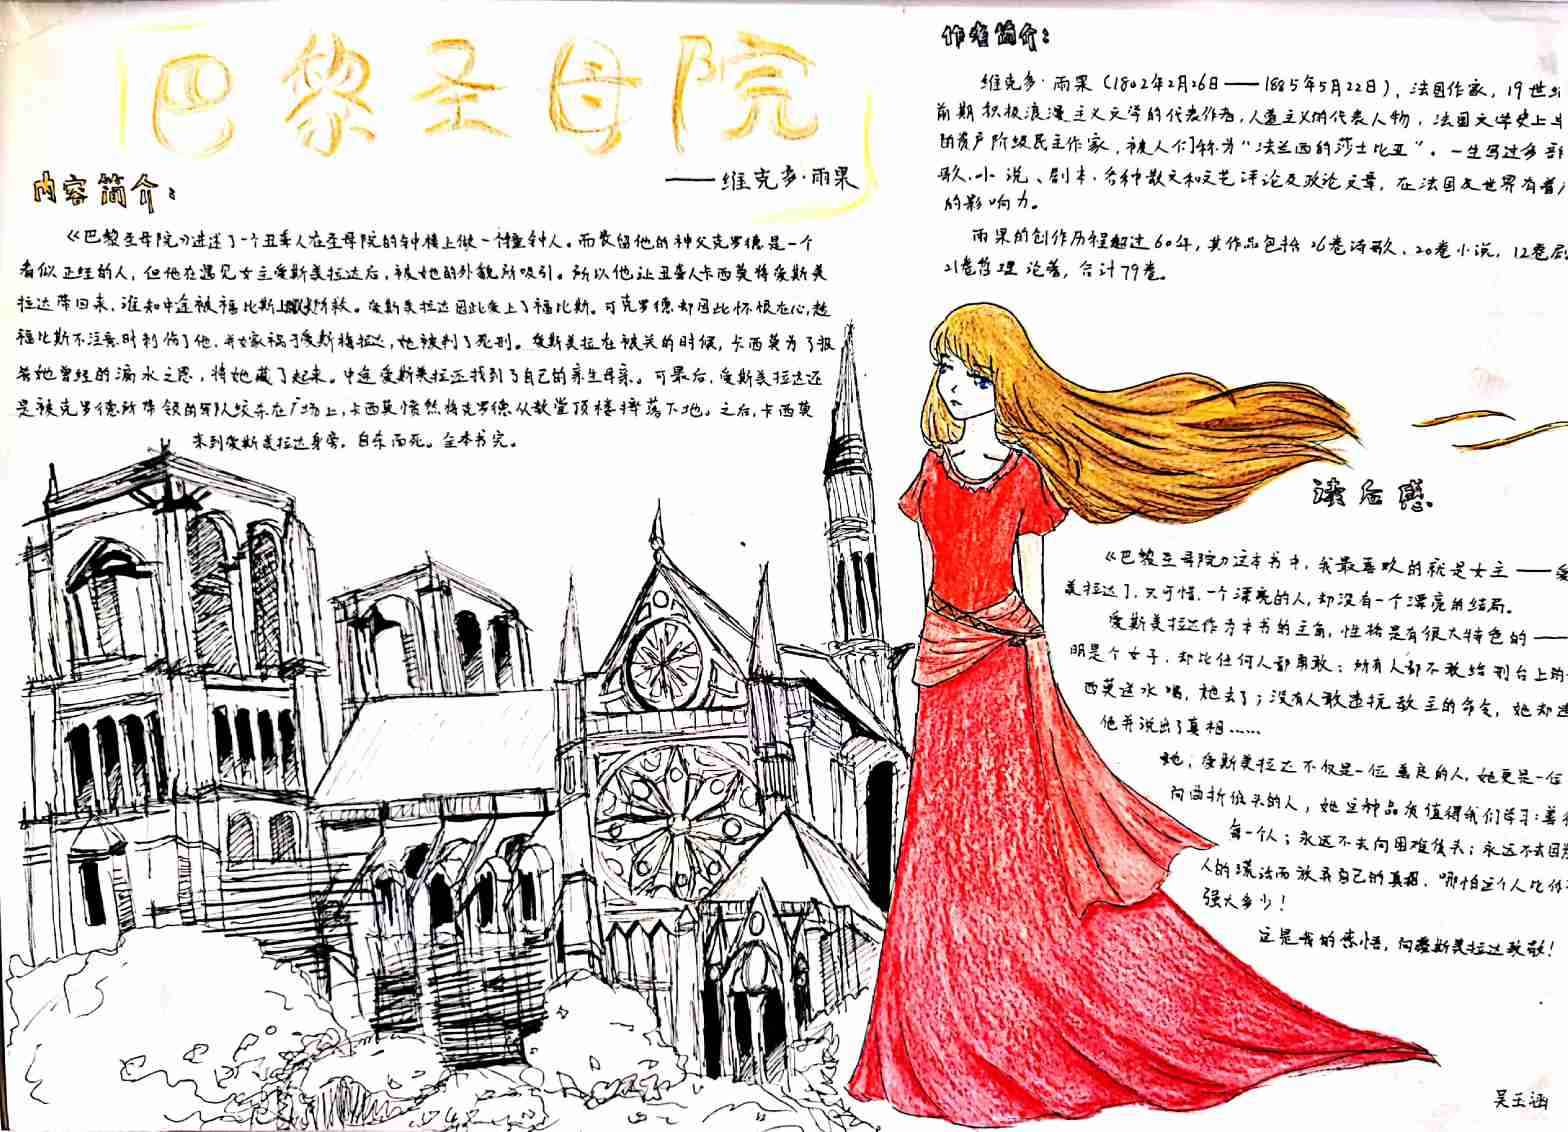 巴黎圣母院
——维克多·雨果
内容简介：
《巴黎圣母院》讲述了一个丑聋人在圣母院的钟楼上做一个撞钟人。而收留他的神父克罗德是一个
看似正经的人，但他在遇见女主爱斯美拉达后，被她的外貌所吸引。所以他让丑聋人卡西莫将爱斯美
拉达带回来，谁知中途被福比斯上尉所救。爱斯美拉达因此爱上了福比斯。可克罗德却因此怀恨在心，趁
福比斯不注意时刺伤了他，并嫁祸于爱斯梅拉达，她被判了死刑。爱斯美拉在被关的时候，卡西莫为了报
答她曾经的滴水之恩，将她藏了起来。中途爱斯美拉达还找到了自己的亲生母亲。可最后，爱斯美拉达还
是被克罗德所带领的军队绞杀在广场上，卡西莫愤然将克罗德从教堂顶楼摔落下地。之后，卡西莫
来到爱斯美拉达身旁，自杀而死。全本书完。
作者简介：
维克多·雨果（1802年2月26日——1885年5月22日），法国作家，19世纪
前期积极浪漫主义文学的代表作者，人道主义的代表人物，法国文学史上
的资产阶级民主作家，被人们称为“法兰西的莎士比亚”。一生写过多部
歌、小说、剧本、各种散文和文艺评论及政论文章，在法国及世界有着
的影响力。
雨果的创作历程超过60年，其作品包括26卷诗歌、20卷小说、12卷剧
21卷哲理论著，合计79卷。
读后感
《巴黎圣母院》这本书中，我最喜欢的就是女主——爱
美拉达了，只可惜，一个漂亮的人，却没有一个漂亮的结局。
爱斯美拉达作为本书的主角，性格是有很大特色的——
明是个女子，却比任何人都勇敢：所有人都不敢给刑台上的
西莫送水喝，她去了；没有人敢违抗教主的命令，她却
他并说出了真相……
她，爱斯美拉达不仅是一位善良的人，她更是一位
向曲折低头的人，她这种品质值得我们学习：善待
每一个人；永远不去向困难低头；永远不去因为
人的谎话而放弃自己的真相，哪怕这个人比你
强大多少！
这是我的感悟，向爱斯美拉达致敬！
吴玉涵